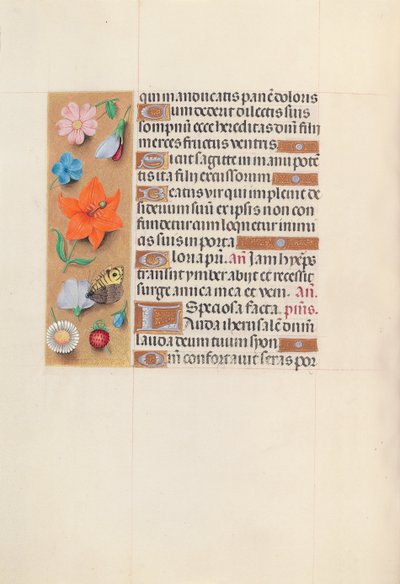 qui manducatis panē doloris
Cum dederit dilectis suis
sompnū ecce hereditas dn̄i filii
merces fructus ventris
Sicut sagitte in manu potē
tis ita filii excussorum
Beatus vir qui impleuit de
siderium suū ex ipsis non con
fundetur cum loquetur inimi
cis suis in porta
Gloria pr̄i. an̄ Iam hyēps
transiit ymber abijt et recessit
surge amica mea et veni. an̄.
Speciosa facta. p̄ṁs.
Lauda iherusalē dn̄um
lauda deum tuum syon
Qm̄ confortauit seras por